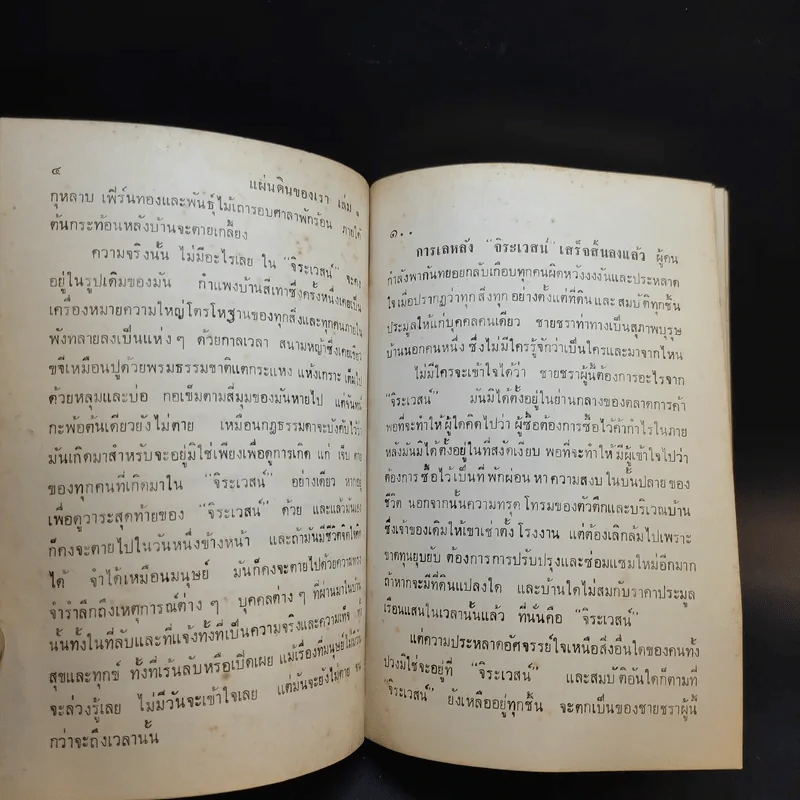 ๔
แผ่นดินของเรา เล่ม ๑
กุหลาบ เฟิร์นทองและพันธุ์ไม้เถารอบศาลาพักร้อน ภายใต้
ต้นกระท้อนหลังบ้านจะตายเกลี้ยง
ความจริงนั้น ไม่มีอะไรเลย ใน “จิระเวสน์” จะคง
อยู่ในรูปเดิมของมัน กำแพงบ้านสีเทาซึ่งครั้งหนึ่งเคยเป็น
เครื่องหมายความใหญ่โตรโหฐานของทุกสิ่งและทุกคนภายใน
พังทลายลงเป็นแห่ง ๆ ด้วยกาลเวลา สนามหญ้าซึ่งเคยเขียว
ขจีเหมือนปูด้วยพรมธรรมชาติแตกระแหง แห้งเกราะ เต็มไป
ด้วยหลุมและบ่อ กอเข็มตามสี่มุมของมันหายไป แต่จันทน์
กะพ้อต้นเดียวยังไม่ตาย เหมือนกฎธรรมดาจะบังคับไว้ว่า
มันเกิดมาสำหรับจะอยู่มิใช่เพียงเพื่อดูการเกิด แก่ เจ็บ ตาย
ของทุกคนที่เกิดมาใน “จิระเวสน์” อย่างเดียว หากอยู่
เพื่อดูวาระสุดท้ายของ “จิระเวสน์” ด้วย และแล้วมันเอง
ก็คงจะตายไปในวันหนึ่งข้างหน้า และถ้ามันมีชีวิตจิตใจคิด
ได้ จำได้เหมือนมนุษย์ มันก็คงจะตายไปด้วยความทรง
จำรำลึกถึงเหตุการณ์ต่าง ๆ บุคคลต่าง ๆ ที่ผ่านมาในบ้าน
นั้นทั้งในที่ลับและที่แจ้งทั้งที่เป็นความจริงและความเท็จ ทั้ง
สุขและทุกข์ ทั้งที่เร้นลับหรือเปิดเผย แม้เรื่องที่มนุษย์ไม่มีวัน
จะล่วงรู้เลย ไม่มีวันจะเข้าใจเลย แต่มันจะยังไม่ตาย จน
กว่าจะถึงเวลานั้น
๑๐๐
การเลหลัง “จิระเวสน์” เสร็จสิ้นลงแล้ว ผู้คน
กำลังพากันทยอยกลับเกือบทุกคนผิดหวังงงงันและประหลาด
ใจเมื่อปรากฏว่าทุกสิ่งทุกอย่างตั้งแต่ที่ดินและสมบัติทุกชิ้น
ประมูลให้แก่บุคคลคนเดียว ชายชราท่าทางเป็นสุภาพบุรุษ
บ้านนอกคนหนึ่ง ซึ่งไม่มีใครรู้จักว่าเป็นใครและมาจากไหน
ไม่มีใครจะเข้าใจได้ว่า ชายชราผู้นี้ต้องการอะไรจาก
“จิระเวสน์” มันมิได้ตั้งอยู่ในย่านกลางของตลาดการค้า
พอที่จะทำให้ผู้ใดคิดไปว่า ผู้ซื้อต้องการซื้อไว้ค้ากำไรในภาย
หลังมันมิได้ตั้งอยู่ในที่สงัดเงียบ พอที่จะทำให้มีผู้เข้าใจไปว่า
ต้องการซื้อไว้เป็นที่พักผ่อน หาความสงบในบั้นปลายของ
ชีวิต นอกจากนั้นความทรุดโทรมของตัวตึกและบริเวณบ้าน
ซึ่งเจ้าของเดิมให้เขาเช่าตั้งโรงงาน แต่ต้องเลิกล้มไปเพราะ
ขาดทุนยุบยับ ต้องการการปรับปรุงและซ่อมแซมใหม่อีกมาก
ถ้าหากจะมีที่ดินแปลงใด และบ้านใดไม่สมกับราคาประมูล
เรือนแสนในเวลานั้นแล้ว ที่นั่นคือ “จิระเวสน์”
แต่ความประหลาดอัศจรรย์ใจเหนือสิ่งอื่นใดของคนทั้ง
ปวงมิใช่จะอยู่ที่ “จิระเวสน์” และสมบัติอันใดก็ตามที่
“จิระเวสน์” ยังเหลืออยู่ทุกชิ้น จะตกเป็นของชายชราผู้นี้